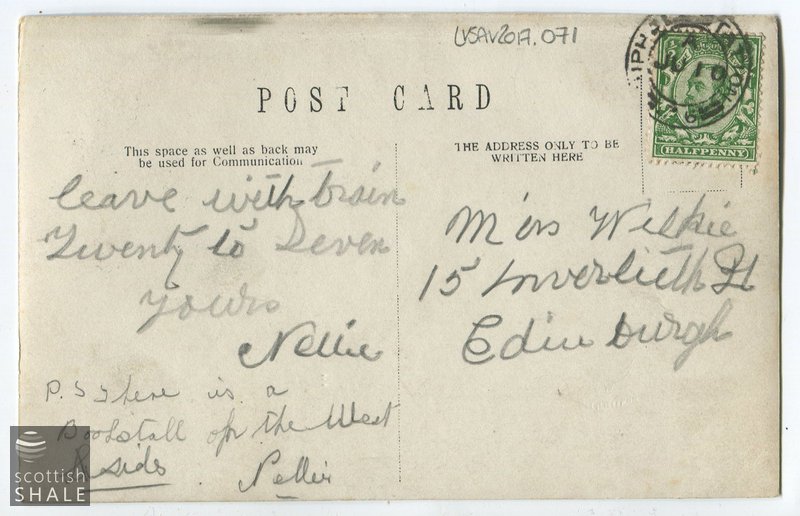 LVSAV2017.071
POST CARD
This space as well as back may
be used for Communication
THE ADDRESS ONLY TO BE
WRITTEN HERE
HALFPENNY
JU 10
leave with train
Twenty to Seven
Yours
Nellie
Miss Wilkie
15 Inverlieth St
Edinburgh
P.S There is a
Bookstall on the West
side
Nellie
scottish
SHALE